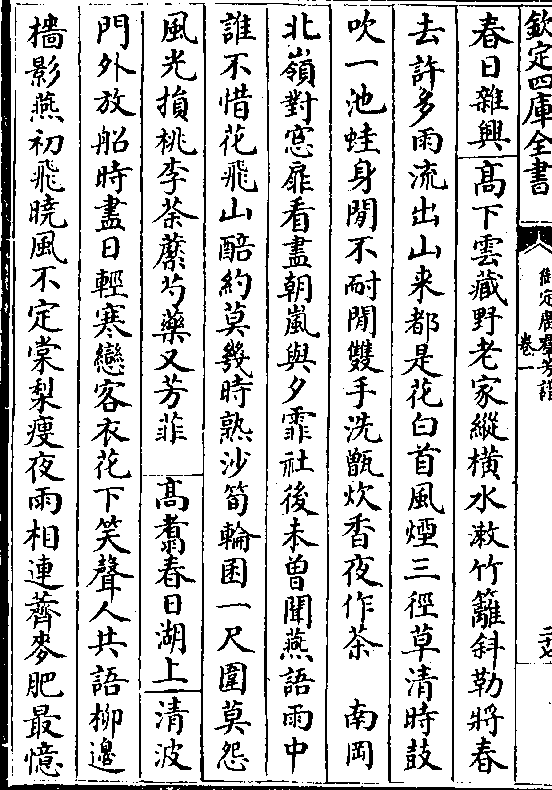 欽定四庫全書
御定廣群芳譜
卷一
春日雜興高下雲藏野老家縱橫水漱竹籬斜勒將春
去許多雨流出山来都是花白首風煙三徑草清時鼓
吹一池蛙身閒不耐閒雙手洗甑炊香夜作茶 南岡
北嶺對窓扉看盡朝嵐與夕霏社後未曽聞燕語雨中
誰不惜花飛山醅約莫幾時熟沙筍輪囷一尺圍莫怨
風光損桃李荼蘼芍藥又芳菲 高翥春日湖上清波
門外放船時盡日輕寒戀客衣花下笑聲人共語柳邊
檣影燕初飛曉風不定棠梨瘦夜雨相連薺麥肥最憶